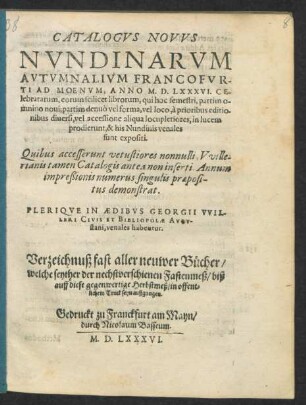 38
CATALOGVS NOVVS
NVNDINARVM
AVTVMNALIVM FRANCOFVR-
TI AD MOENVM, ANNO M. D. LXXXVI. CE-
lebratarum, eorum scilicet librorum, qui hoc semestri, partim o-
mnino noui, partim denuò vel forma, vel loco, à prioribus editio-
nibus diuersi, vel accessione aliqua locupletiores, in lucem
prodierunt, & his Nundinis venales
sunt expositi.
Quibus accesserunt vetustiores nonnulli, Vville-
rianis tamen Catalogis antea non inserti. Annum
impressionis numerus singulis præposi-
tus demonstrat.
PLERIQVE IN ÆDIBVS GEORGII VVIL-
LERI CIVIS ET BIBLIOPOLÆ AVGV-
stani, venales habentur.
Verzeichnuß fast aller neuwer Bücher/
welche seyther der nechstverschienen Fastenmeß/ biß
auff diese gegenwertige Herbstmeß/ in offent-
lichem Truck seyn außgangen.
Gedruckt zu Franckfurt am Mayn/
durch Nicolaum Basseum.
M. D. LXXXVI.